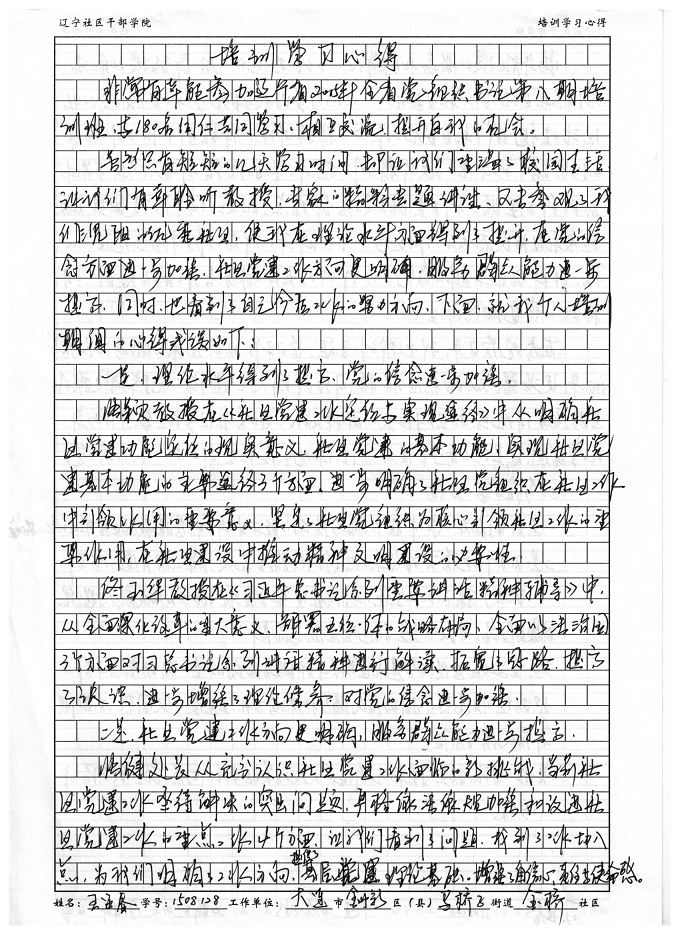 辽宁社区干部学院 培训学习心得
培训学习心得
非常有幸能参加辽宁省2015年全省党组织书记第八期培
训班,与180名同仁共同学习、相互交流,提升自我的机会。
尽管只有短短的几天学习时间,却让我们充满了校园生活
让我们有幸聆听教授、专家的精彩专题讲课、又去参观了我
们沈阳的优秀社区,使我在理论水平方面得到了提升,在党的信
念方面进一步加强,社区党建工作方向更明确,服务群众能力进一步
提高,同时,也看到了自己今后工作的努力方向,下面,就我个人培训
期间的心得我谈如下:
一是、理论水平得到了提高、党的信念进一步加强。
教授在《社区党建工作定位与实现途径》中从明确社
区党建功能定位的现实意义、社区党建的基本功能、实现社区党
建基本功能的主要途径3个方面,进一步明确了社区党组织在社区工作
中引领作用的重要意义,坚定了社区党组织为核心引领社区工作的重
要作用,在社区建设中推动精神文明建设的必要性。
教授在《习近平总书记系列重要讲话精神辅导》中,
从全面深化改革的重大意义、部署五位一体的战略布局、全面以法治国
3个方面对习总书记系列讲话精神进行解读、拓宽了思路、提高
了认识、进一步增强了理论修养、对党的信念进一步加强。
二是、社区党建工作方向更明确,服务群众能力进一步提高。
处长从充分认识社区党建工作面临的新挑战、当前社
区党建工作亟待解决的突出问题、
区党建工作的重点工作4个方面,让我们看到了问题,找到了工作切入
点,为我们明确了工作方向,基层党建理论基础,增强了自信、责任与使命感。
姓名: 学号:1508128 工作单位:大连 市 金州新 区(县) 马桥子 街道 金桥 社区